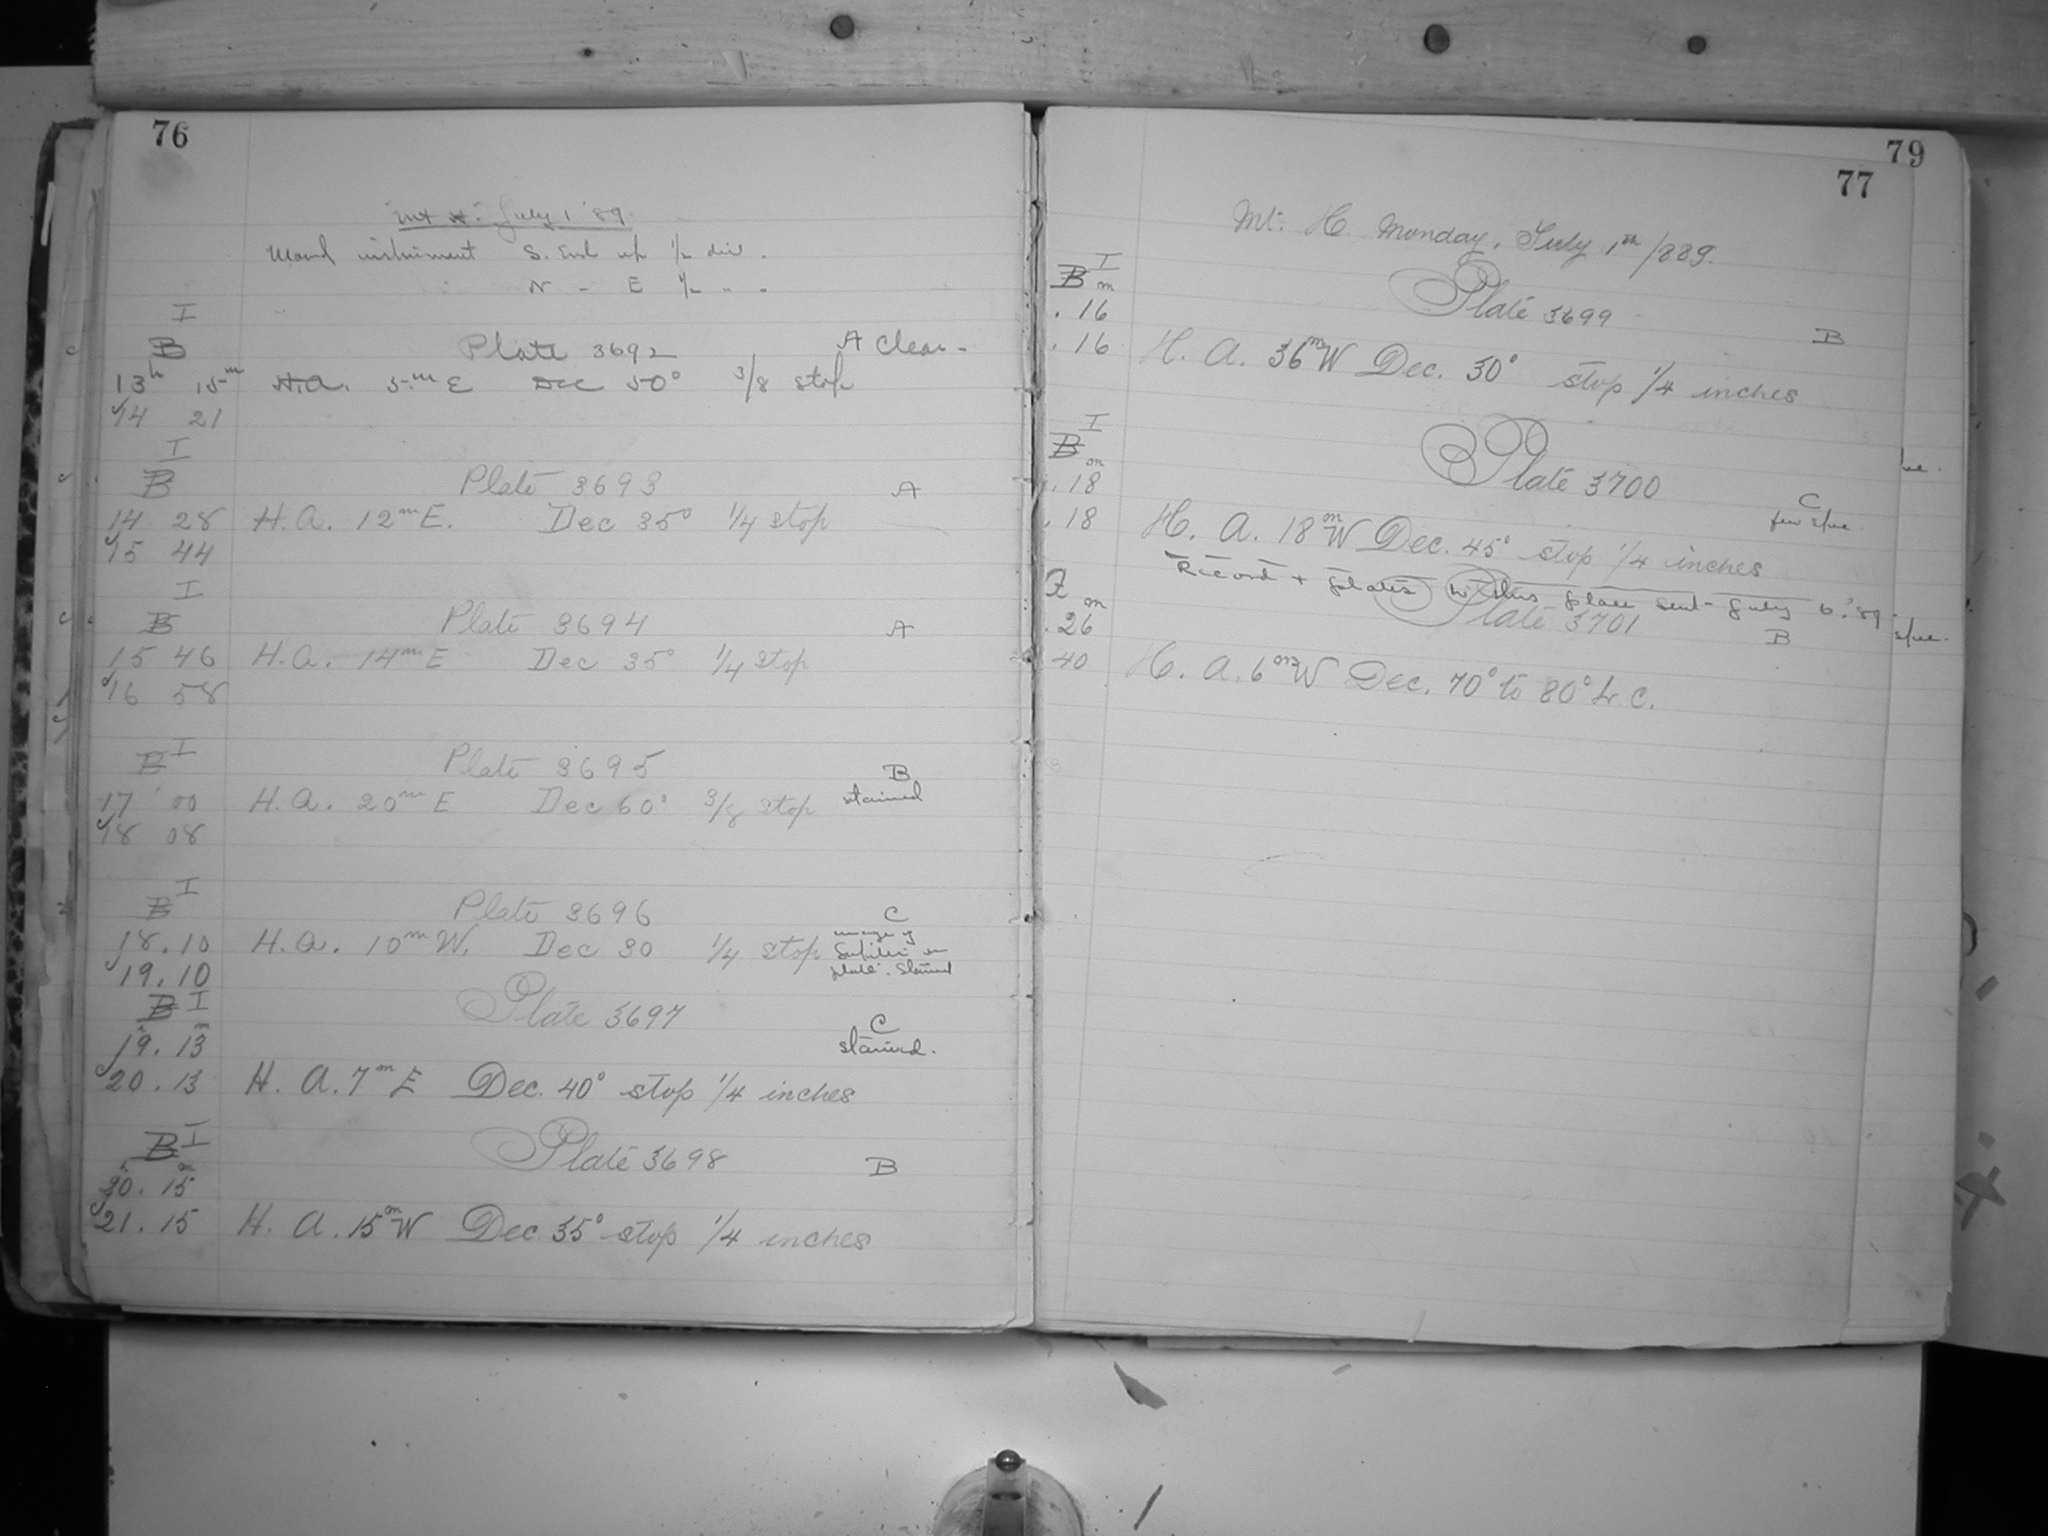 76
Mt H. July 1 '89
instrument S. End up 1/2 div.
N - E 1/2 " "
I
B Plate 3692 A Clear -
13h 15m H.A. 5m E Dec 50° 3/8 stop
14 21
I
B Plate 3693 A
14 28 H.A. 12m E. Dec 35° 1/4 stop
15 44
I
B Plate 3694 A
15 46 H.A. 14m E Dec 35° 1/4 stop
16 58
I
B Plate 3695 B
17 00 H.A. 20m E Dec 60° 3/8 stop stained
18 08
I
B Plate 3696 C
18.10 H.A. 10m W. Dec 30 1/4 stop image of
Jupiter on
plate. Stained
19.10
B I Plate 3697 C
h m
19. 13 stained.
20. 13 H. A. 7m E Dec. 40° stop 1/4 inches
B I Plate 3698 B
h m
20. 15
21. 15 H. A. 15m W Dec. 35° stop 1/4 inches
79
77
Mt. H. Monday, July 1st 1889.
I
B m Plate 3699
. 16 B
. 16 H. A. 36m W Dec. 30° stop 1/4 inches
I
B m Plate 3700
. 18 C
few
. 18 H. A. 18m W Dec. 45° stop 1/4 inches
Record + plates to this place sent July 6. '89.
m Plate 3701
. 26 B
40 H. A. 6m W Dec. 70° to 80° L. C.